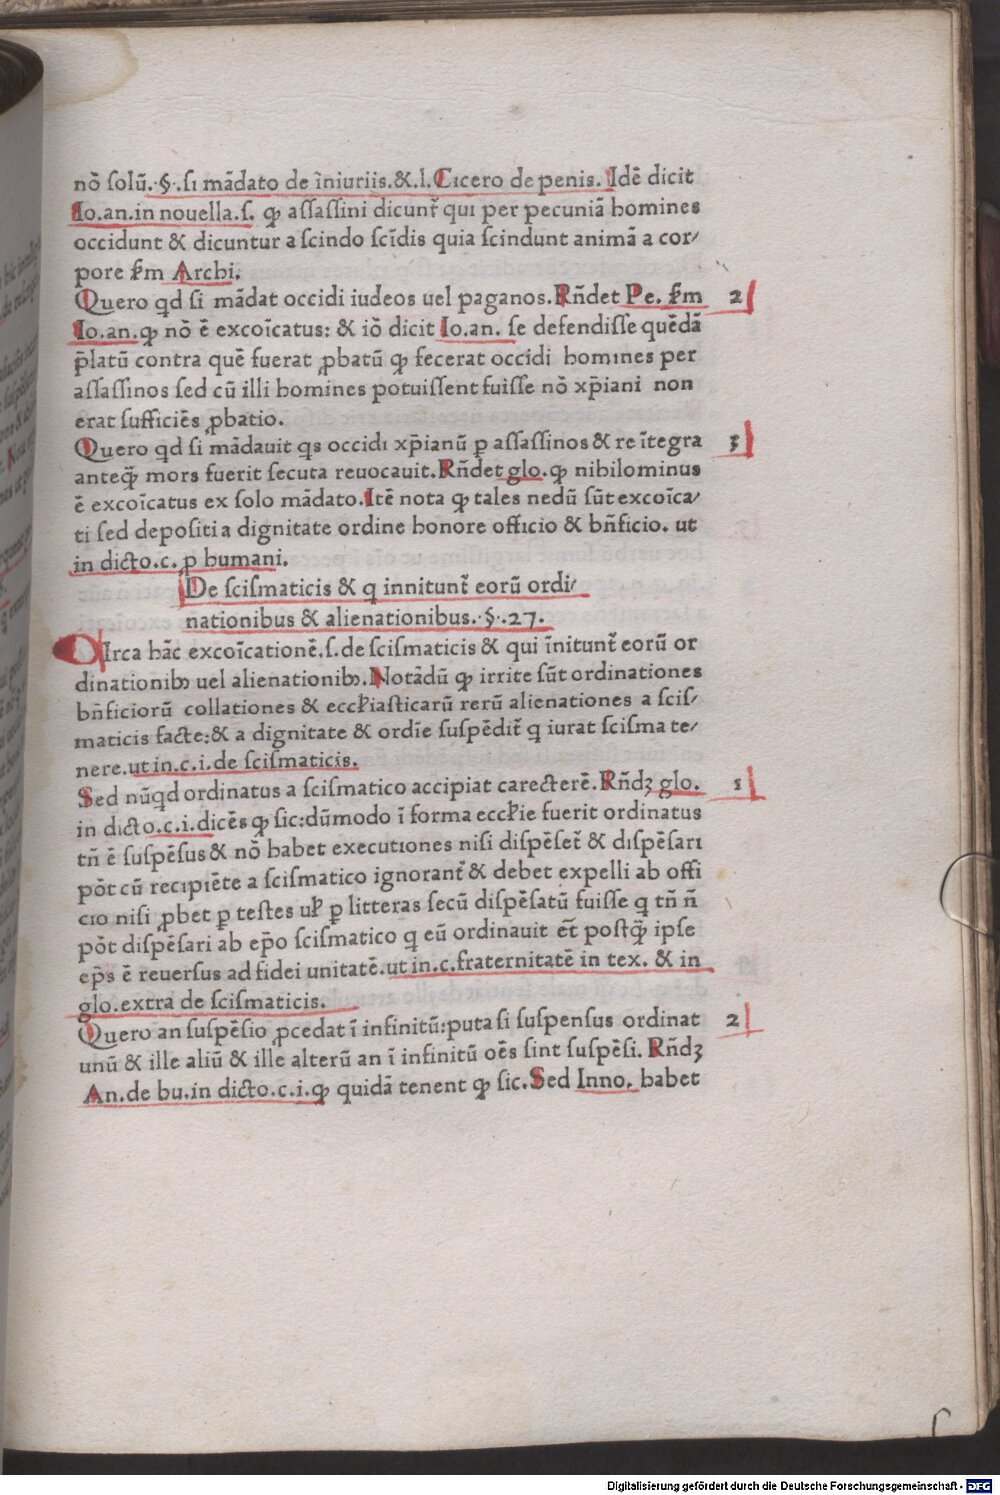 nō solū.·§·.si mādato de īniuriis.&.l.Cicero de penis. Idē dicit
Io.an.in nouella.s. ꝙ assassini dicunt᷑ qui per pecuniā homines
occidunt & dicuntur a scindo scīdis quia scindunt animā a cor/
pore ẜm Archi.
Quero qd si mādat occidi iudeos uel paganos.Rn̄det Pe. ẜm 2
Io.an.ꝙ nō ē excoīcatus: & iō dicit Io.an. se defendisse quēdā
p̄latū contra quē fuerat ꝓbatū ꝙ fecerat occidi homines per
assassinos sed cū illi homines potuissent fuisse nō xp̄iani non
erat sufficiēs ꝓbatio.
Quero qd si mādauit qs occidi xp̄ianū ꝑ assassinos & re ītegra 3
anteꝙ̄ mors fuerit secuta reuocauit.Rn̄det glo.ꝙ nihilominus
ē excoīcatus ex solo mādato.Itē nota ꝙ tales nedū sūt excoīca/
ti sed depositi a dignitate ordine honore officio & bn̄ficio. ut
in dicto.c. ꝓ humani.
De scismaticis & q innitunt᷑ eorū ordi/
nationibus & alienationibus.·§·.27.
CIrca hāc excoīcationē.s.de scismaticis & qui īnitunt᷑ eorū or
dinationibꝫ uel alienationibꝫ.Notādū ꝙ irrite sūt ordinationes
bn̄ficiorū collationes & eccl̄iasticarū rerū alienationes a scis/
maticis facte:& a dignitate & ordīe suspēdit᷑ q iurat scisma te/
nere.ut in.c.i.de scismaticis.
Sed nūqd ordinatus a scismatico accipiat carecterē.Rn̄dꝫ glo. 1
in dicto.c.i.dicēs ꝙ sic:dūmodo ī forma eccl̄ie fuerit ordinatus
tn̄ ē suspēsus & nō habet executiones nisi dispēset᷑ & dispēsari
pōt cū recipiēte a scismatico ignorant᷑ & debet expelli ab offi
cio nisi ꝓbet ꝑ testes ul̄ ꝑ litteras secū dispēsatū fuisse q tn̄ n̄
pōt dispēsari ab ep̄o scismatico q eū ordinauit et̄ postꝙ̄ ipse
ep̄s ē reuersus ad fidei unitatē.ut in.c.fraternitatē in tex. & in
glo.extra de scismaticis.
Quero an suspēsio ꝓcedat ī infinitū:puta si suspensus ordinat 2
unū & ille aliū & ille alterū an ī infinitū oēs sint suspēsi. Rn̄dꝫ
An.de bu.in dicto.c.i.ꝙ quidā tenent ꝙ sic.Sed Inno. habet
Digitalisierung gefördert durch die Deutsche Forschungsgemeinschaft - DFG